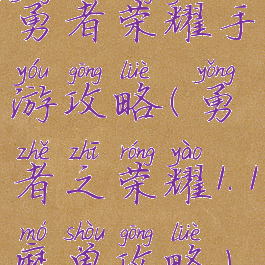 勇者荣耀手
yóu gōng lüè yǒng
游攻略(勇
zhě zhī róng yào
者之荣耀1.1
mó shòu gōng lüè
魔兽攻略)